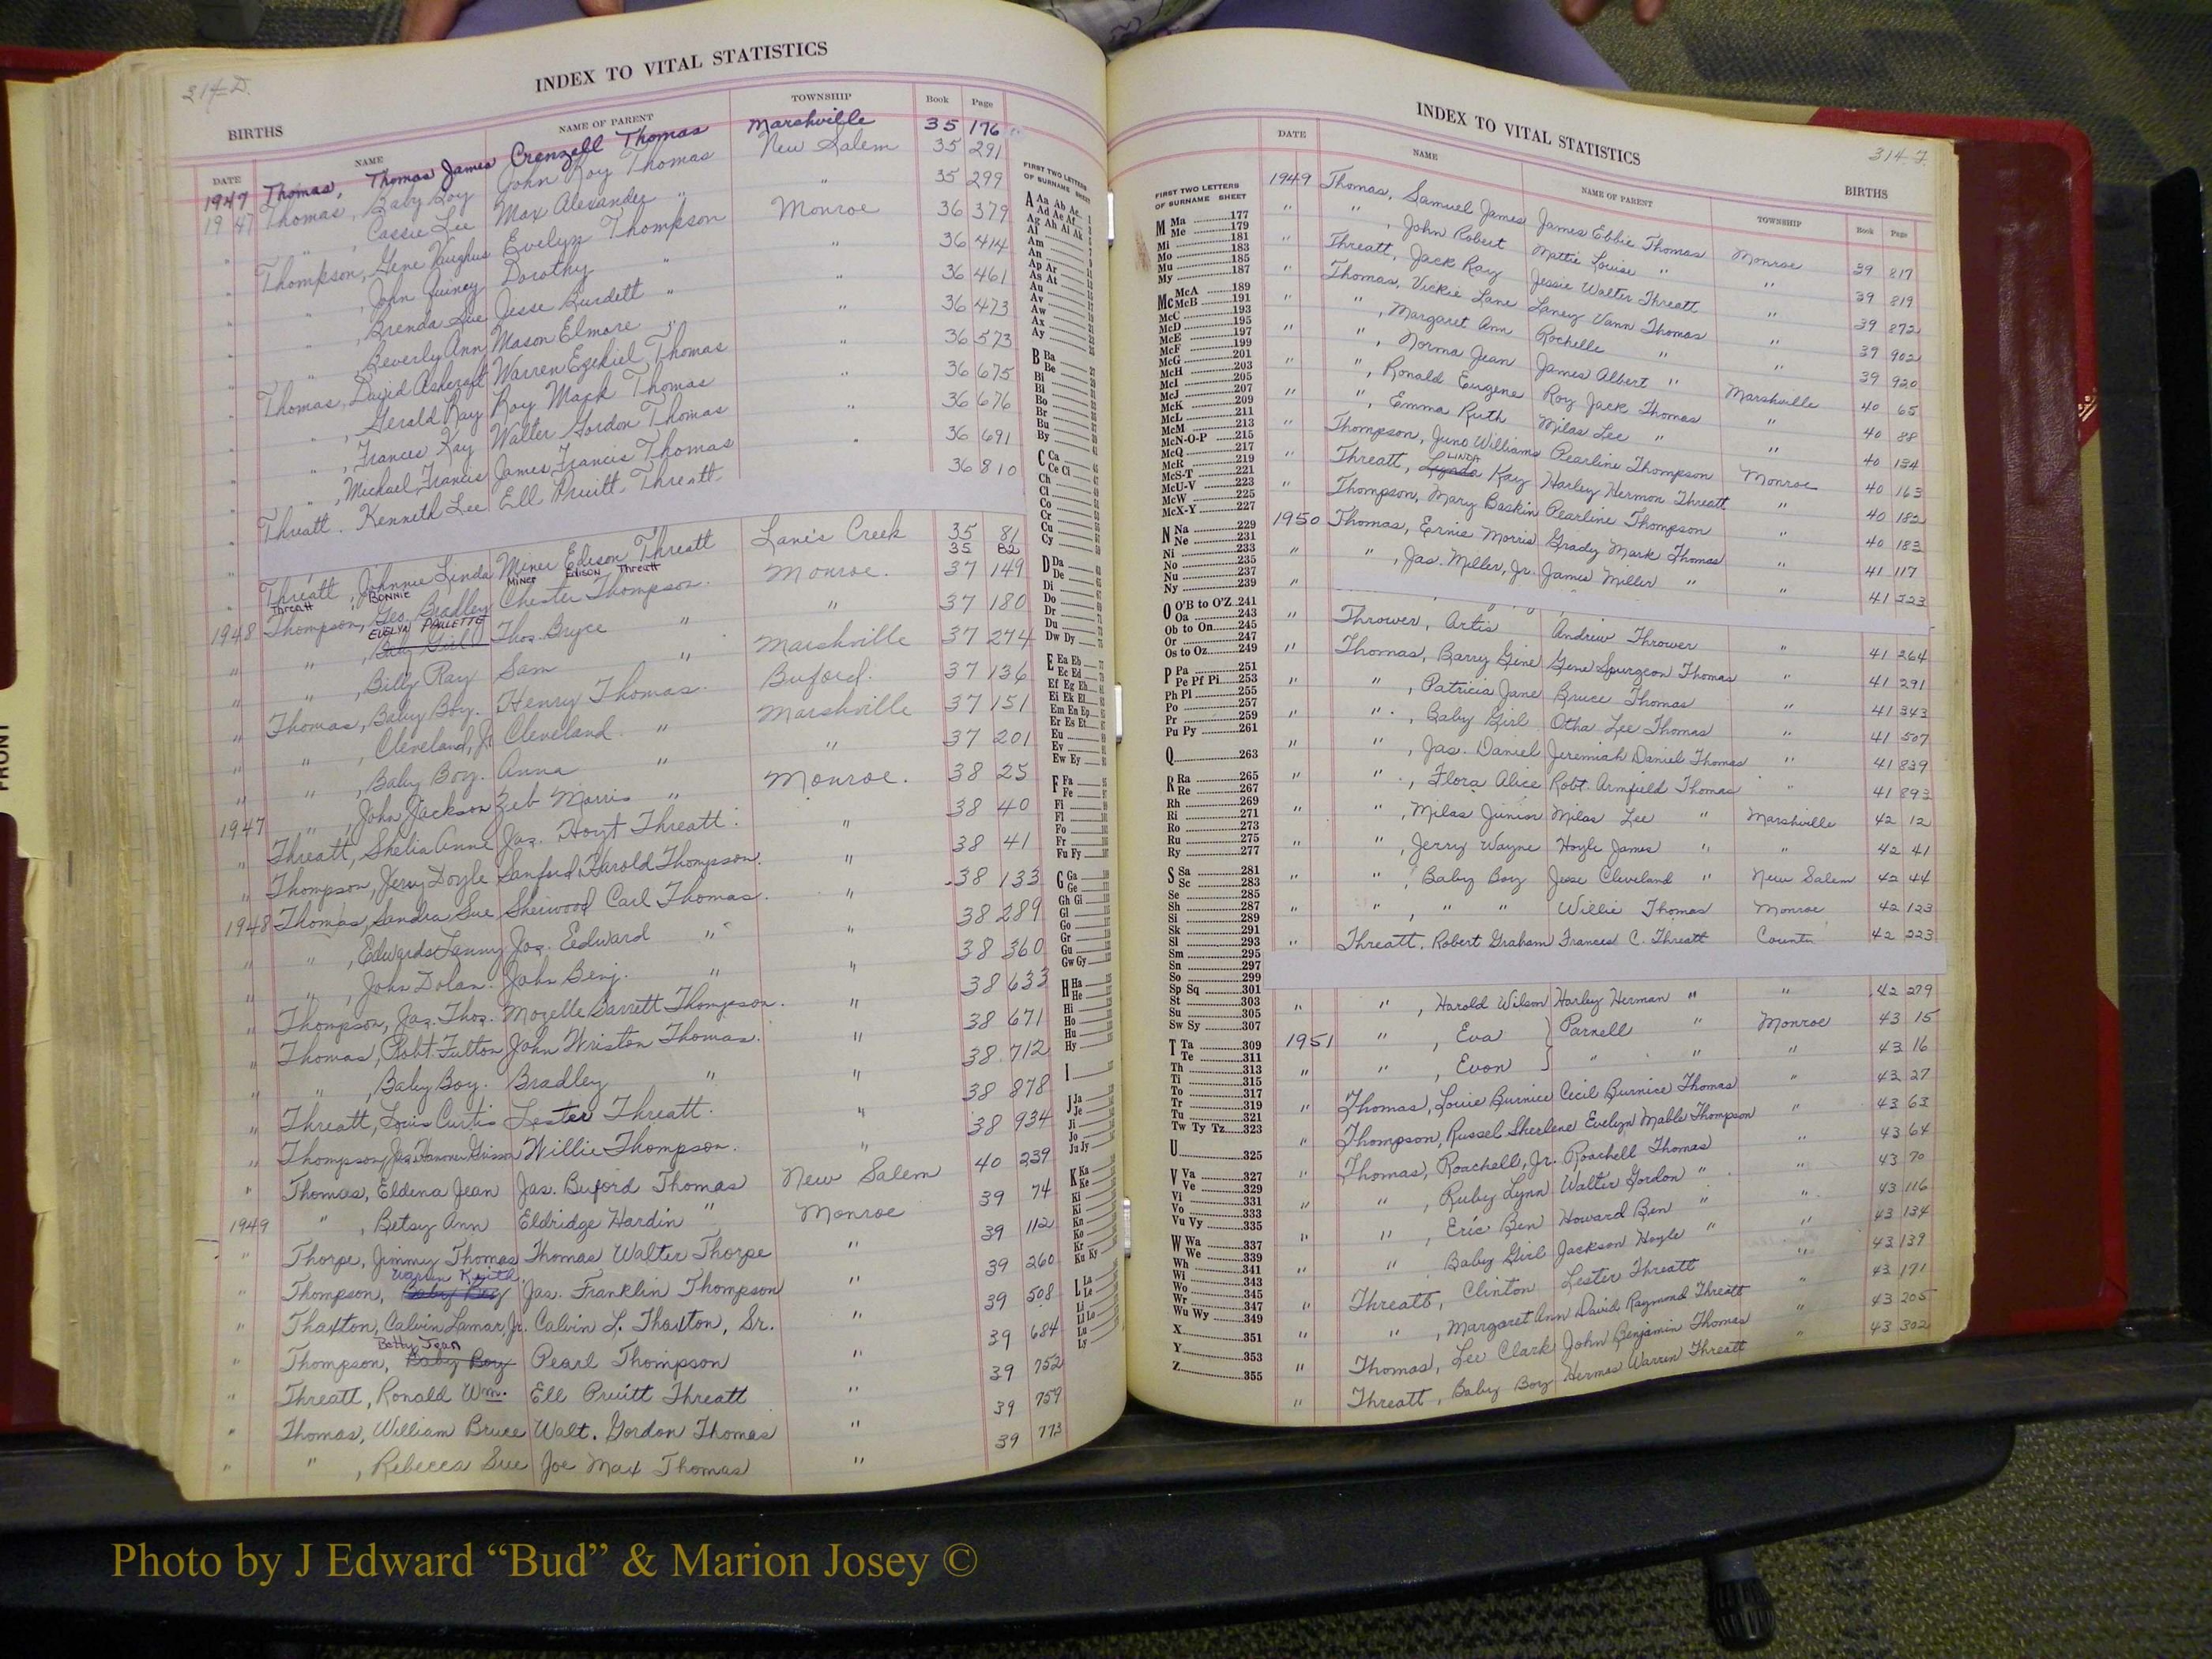 214-D.
INDEX TO VITAL STATISTICS
BIRTHS
DATE NAME NAME OF PARENT TOWNSHIP Book Page
1947 Thomas, Thomas James Crenzell Thomas Marshville 35 176
1947 Thomas, Baby Boy John Roy Thomas New Salem 35 291
" " , Cassie Lee Max Alexander " " 35 299
" Thompson, Gene Vaughus Evelyn Thompson Monroe 36 379
" " , John Quincy Dorothy " " 36 414
" " , Brenda Sue Jesse Burdett " " 36 461
" " , Beverly Ann Mason Elmore " " 36 473
" Thomas, David Ashcraft Warren Ezekiel Thomas " 36 573
" " , Gerald Ray Roy Mack Thomas " 36 675
" " , Frances Kay Walter Gordon Thomas " 36 676
" " , Michael Francis James Francis Thomas " 36 691
" Threatt. Kenneth Lee Ell Pruitt Threatt. 36 810
" Threatt, Johnnie Linda Miner Edison Threatt Lane's Creek 35 81
Threatt BONNIE Miner Edison Threatt 35 82
1948 Thompson, Geo. Bradley Chester Thompson. Monroe. 37 149
EVELYN PAULETTE
" " , Baby Girl Thos. Bryce " " 37 180
" " , Billy Ray Sam " Marshville 37 274
" Thomas, Baby Boy. Henry Thomas. Buford. 37 136
" " , Cleveland, Jr Cleveland. " Marshville 37 151
" " , Baby Boy. Anna " " 37 201
1947 " , John Jackson Zeb Morris " Monroe. 38 25
" Threatt, Shelia Anne Jas. Hoyt Threatt. " 38 40
" Thompson, Jerry Doyle Sanford Harold Thompson. " 38 41
1948 Thomas, Sandra Sue Sherwood Carl Thomas. " 38 133
" " , Edwards Lanny Jas. Eedward " " 38 289
" " , John Dolan. John Benj. " " 38 360
" Thompson, Jas. Thos. Mozelle Barrett Thompson. " 38 633
" Thomas, Robt. Fulton John Wriston Thomas. " 38 671
" " , Baby Boy. Bradley " " 38 712
" Threatt, Louis Curtis Lester Threatt. " 38 878
" Thompson, Willie Thompson. " 38 934
" Thomas, Eldena Jean Jas. Buford Thomas New Salem 40 239
1949 " , Betsy Ann Eldridge Hardin " Monroe 39 74
" Thorpe, Jimmy Thomas Thomas Walter Thorpe " 39 112
Warren Keith
" Thompson, Baby Boy Jas. Franklin Thompson " 39 260
" Thaxton, Calvin Lamar, Jr. Calvin L. Thaxton, Sr. " 39 508
Betty Jean
" Thompson, Baby Boy Pearl Thompson " 39 684
" Threatt, Ronald Wm. Ell Pruitt Threatt " 39 752
" Thomas, William Bruce Walt. Gordon Thomas " 39 759
" " , Rebecca Sue Joe Max Thomas " 39 773
FIRST TWO LETTERS
OF SURNAME SHEET
A Aa Ab Ac
Ad Ae Af
Ag Ah Ai Ak
Al
Am
An
Ap Ar
As At
Au
Av
Aw
Ax
Ay
B Ba
Be
Bi
Bl
Bo
Br
Bu
By
C Ca
Ce Ci
Ch
Cl
Co
Cr
Cu
Cy
D Da
De
Di
Do
Dr
Du
Dw Dy
E Ea Eb
Ec Ed
Ef Eg Eh
Ei Ek El
Em En Ep
Er Es Et
Eu
Ev
Ew Ey
F Fa
Fe
Fi
Fl
Fo
Fr
Fu Fy
G Ga
Ge
Gh Gi
Gl
Go
Gr
Gu
Gw Gy
H Ha
He
Hi
Ho
Hu
Hy
I
J Ja
Je
Ji
Jo
Ju Jy
K Ka
Ke
Ki
Kl
Kn
Ko
Kr
Ku Ky
L La
Le
Li
Ll Lo
Lu
Ly
INDEX TO VITAL STATISTICS
BIRTHS
DATE NAME NAME OF PARENT TOWNSHIP Book Page
FIRST TWO LETTERS
OF SURNAME SHEET
M Ma 177
Me 179
Mi 181
Mo 183
Mu 185
My 187
Mc McA 189
McB 191
McC 193
McD 195
McE 197
McF 199
McG 201
McH 203
McI 205
McJ 207
McK 209
McL 211
McM 213
McN-O-P 215
McQ 217
McR 219
McS-T 221
McU-V 223
McW 225
McX-Y 227
N Na 229
Ne 231
Ni 233
No 235
Nu 237
Ny 239
O O'B to O'Z 241
Oa 243
Ob to On 245
Or 247
Os to Oz 249
P Pa 251
Pe Pf Pi 253
Ph Pl 255
Po 257
Pr 259
Pu Py 261
Q 263
R Ra 265
Re 267
Rh 269
Ri 271
Ro 273
Ru 275
Ry 277
S Sa 281
Sc 283
Se 285
Sh 287
Si 289
Sk 291
Sl 293
Sm 295
Sn 297
So 299
Sp Sq 301
St 303
Su 305
Sw Sy 307
T Ta 309
Te 311
Th 313
Ti 315
To 317
Tr 319
Tu 321
Tw Ty Tz 323
U 325
V Va 327
Ve 329
Vi 331
Vo 333
Vu Vy 335
W Wa 337
We 339
Wh 341
Wi 343
Wo 345
Wr 347
Wu Wy 349
X 351
Y 353
Z 355
1949 Thomas, Samuel James James Ebbie Thomas Monroe 39 817
" " , John Robert Mattie Louise " " 39 819
" Threatt, Jack Ray Jessie Walter Threatt " 39 872
" Thomas, Vickie Lane Laney Vann Thomas " 39 902
" " , Margaret Ann Rochelle " " 39 920
" " , Norma Jean James Albert " Marshville 40 65
" " , Ronald Eugene Roy Jack Thomas " 40 88
" " , Emma Ruth Milas Lee " " 40 134
" Thompson, Juno Williams Pearline Thompson Monroe 40 163
LINDA
" Threatt, Lynda Kay Harley Hermon Threatt " 40 182
" Thompson, Mary Baskin Pearline Thompson " 40 183
1950 Thomas, Ernie Morris Grady Mark Thomas " 41 117
" " , Jas. Miller, Jr. James Miller " " 41 223
" Thrower, Artis Andrew Thrower " 41 264
" Thomas, Barry Gene Gene Spurgeon Thomas " 41 291
" " , Patricia Jane Bruce Thomas " 41 343
" " , Baby Girl Otha Lee Thomas " 41 507
" " , Jas. Daniel Jeremiah Daniel Thomas " 41 839
" " , Flora Alice Robt. Armfield Thomas " 41 893
" " , Milas Junior Milas Lee " Marshville 42 12
" " , Jerry Wayne Hoyle James " " 42 41
" " , Baby Boy Jesse Cleveland " New Salem 42 44
" " , " " Willie Thomas Monroe 42 123
" Threatt. Robert Graham Frances C. Threatt County 42 223
" " , Harold Wilson Harley Herman " " 42 279
1951 " , Eva } Parnell " Monroe 43 15
" " , Evon } " " " 43 16
" Thomas, Louie Burnice Cecil Burnice Thomas " 43 27
" Thompson, Russel Sherlene Evelyn Mable Thompson " 43 63
" Thomas, Roachell, Jr. Roachell Thomas " 43 64
" " , Ruby Lynn Walter Gordon " " 43 70
" " , Eric Ben Howard Ben " " 43 116
" " , Baby Girl Jackson Hoyle " " 43 134
" Threatt, Clinton Lester Threatt " 43 139
" " , Margaret Ann David Raymond Threatt " 43 171
" Thomas, Lee Clark John Benjamin Thomas " 43 205
" Threatt, Baby Boy Hermas Warren Threatt " 43 302
FRONT
Photo by J Edward “Bud” & Marion Josey ©